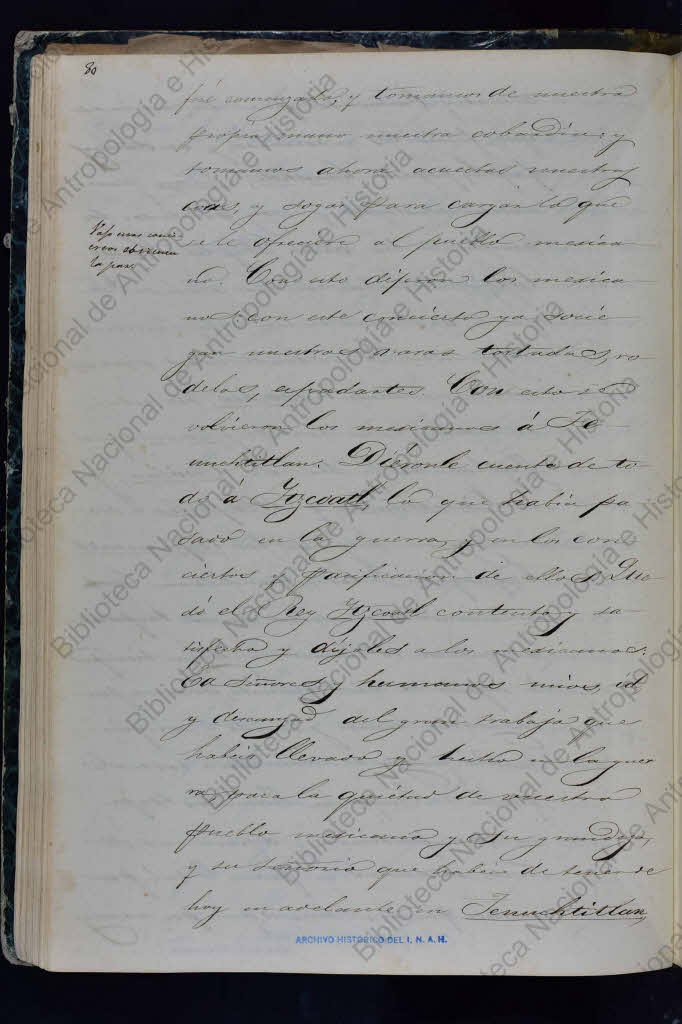 80
fué comenzada, y tomamos de nuestra
propia mano nuestra cobardia: y
tomamos ahora acuestas nuestras
 y sogas para cargar lo que
se le ofreciere al pueblo mexica
no. Con esto dijeron los mexica
nos: con este concierto ya socie
gan nuestras varas tostadas, ro
delas, espadartes. Con esto se
volvieron los mexicanos á Te
nuchtitlan. Diéronle cuenta de to-
do á Itzcoatl, lo que habia pa
sado en la guerra, y en los con-
ciertos y pacificacion de ellos. Que
dó el Rey Itzcoatl contento y sa
tisfecho y díjoles a los mexicanos:
Ea Señores y hermanos mios, id
y descansad del gran trabajo que
habeis llevado y hecho en la guer
ra, para la quietud de nuestro
pueblo mexicano y su grandeza,
y su señorio que habeis de tener de
hoy en adelante en Tenuchtitlan,
la paz
ARCHIVO HISTÓRICO DEL I. N. A. H.
Biblioteca Nacional de Antropología e Historia